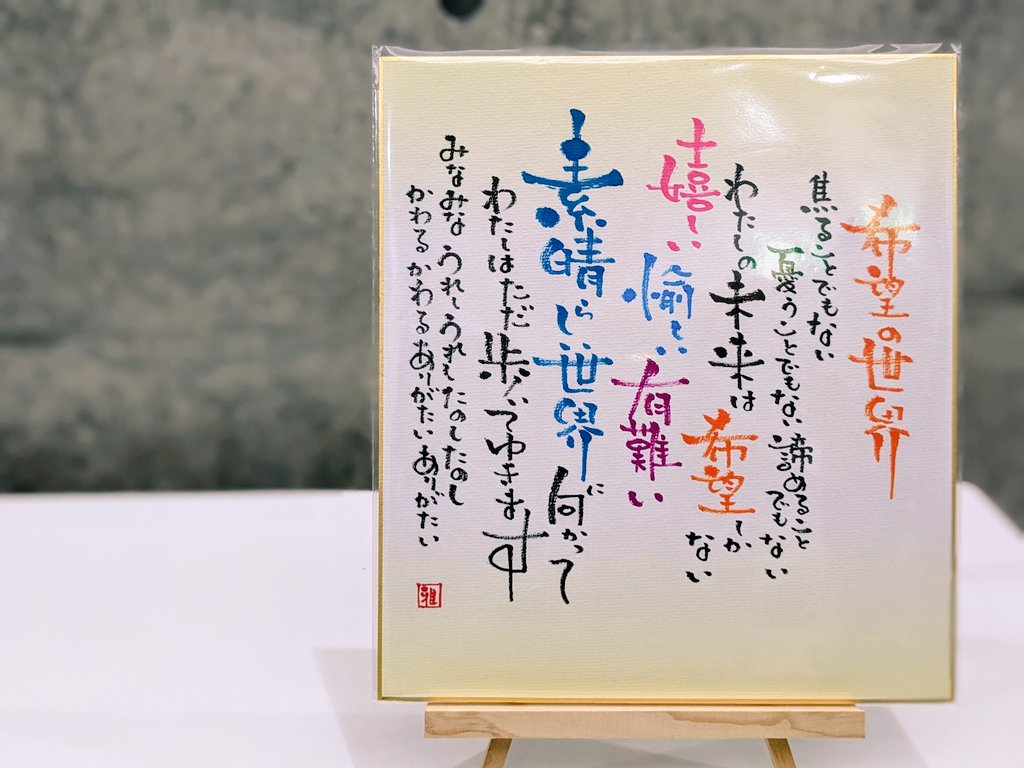 希望の世界
焦ることでもない
憂うことでもない
諦めること
でもない
わたしの未来は
希望しか
ない
嬉しい
愉しい
有難い
素晴らしい世界
に向かって
わたしはただ歩いてゆきます
みなみな うれしうれしたのしたのし
かわるかわるありがたいありがたい
雅